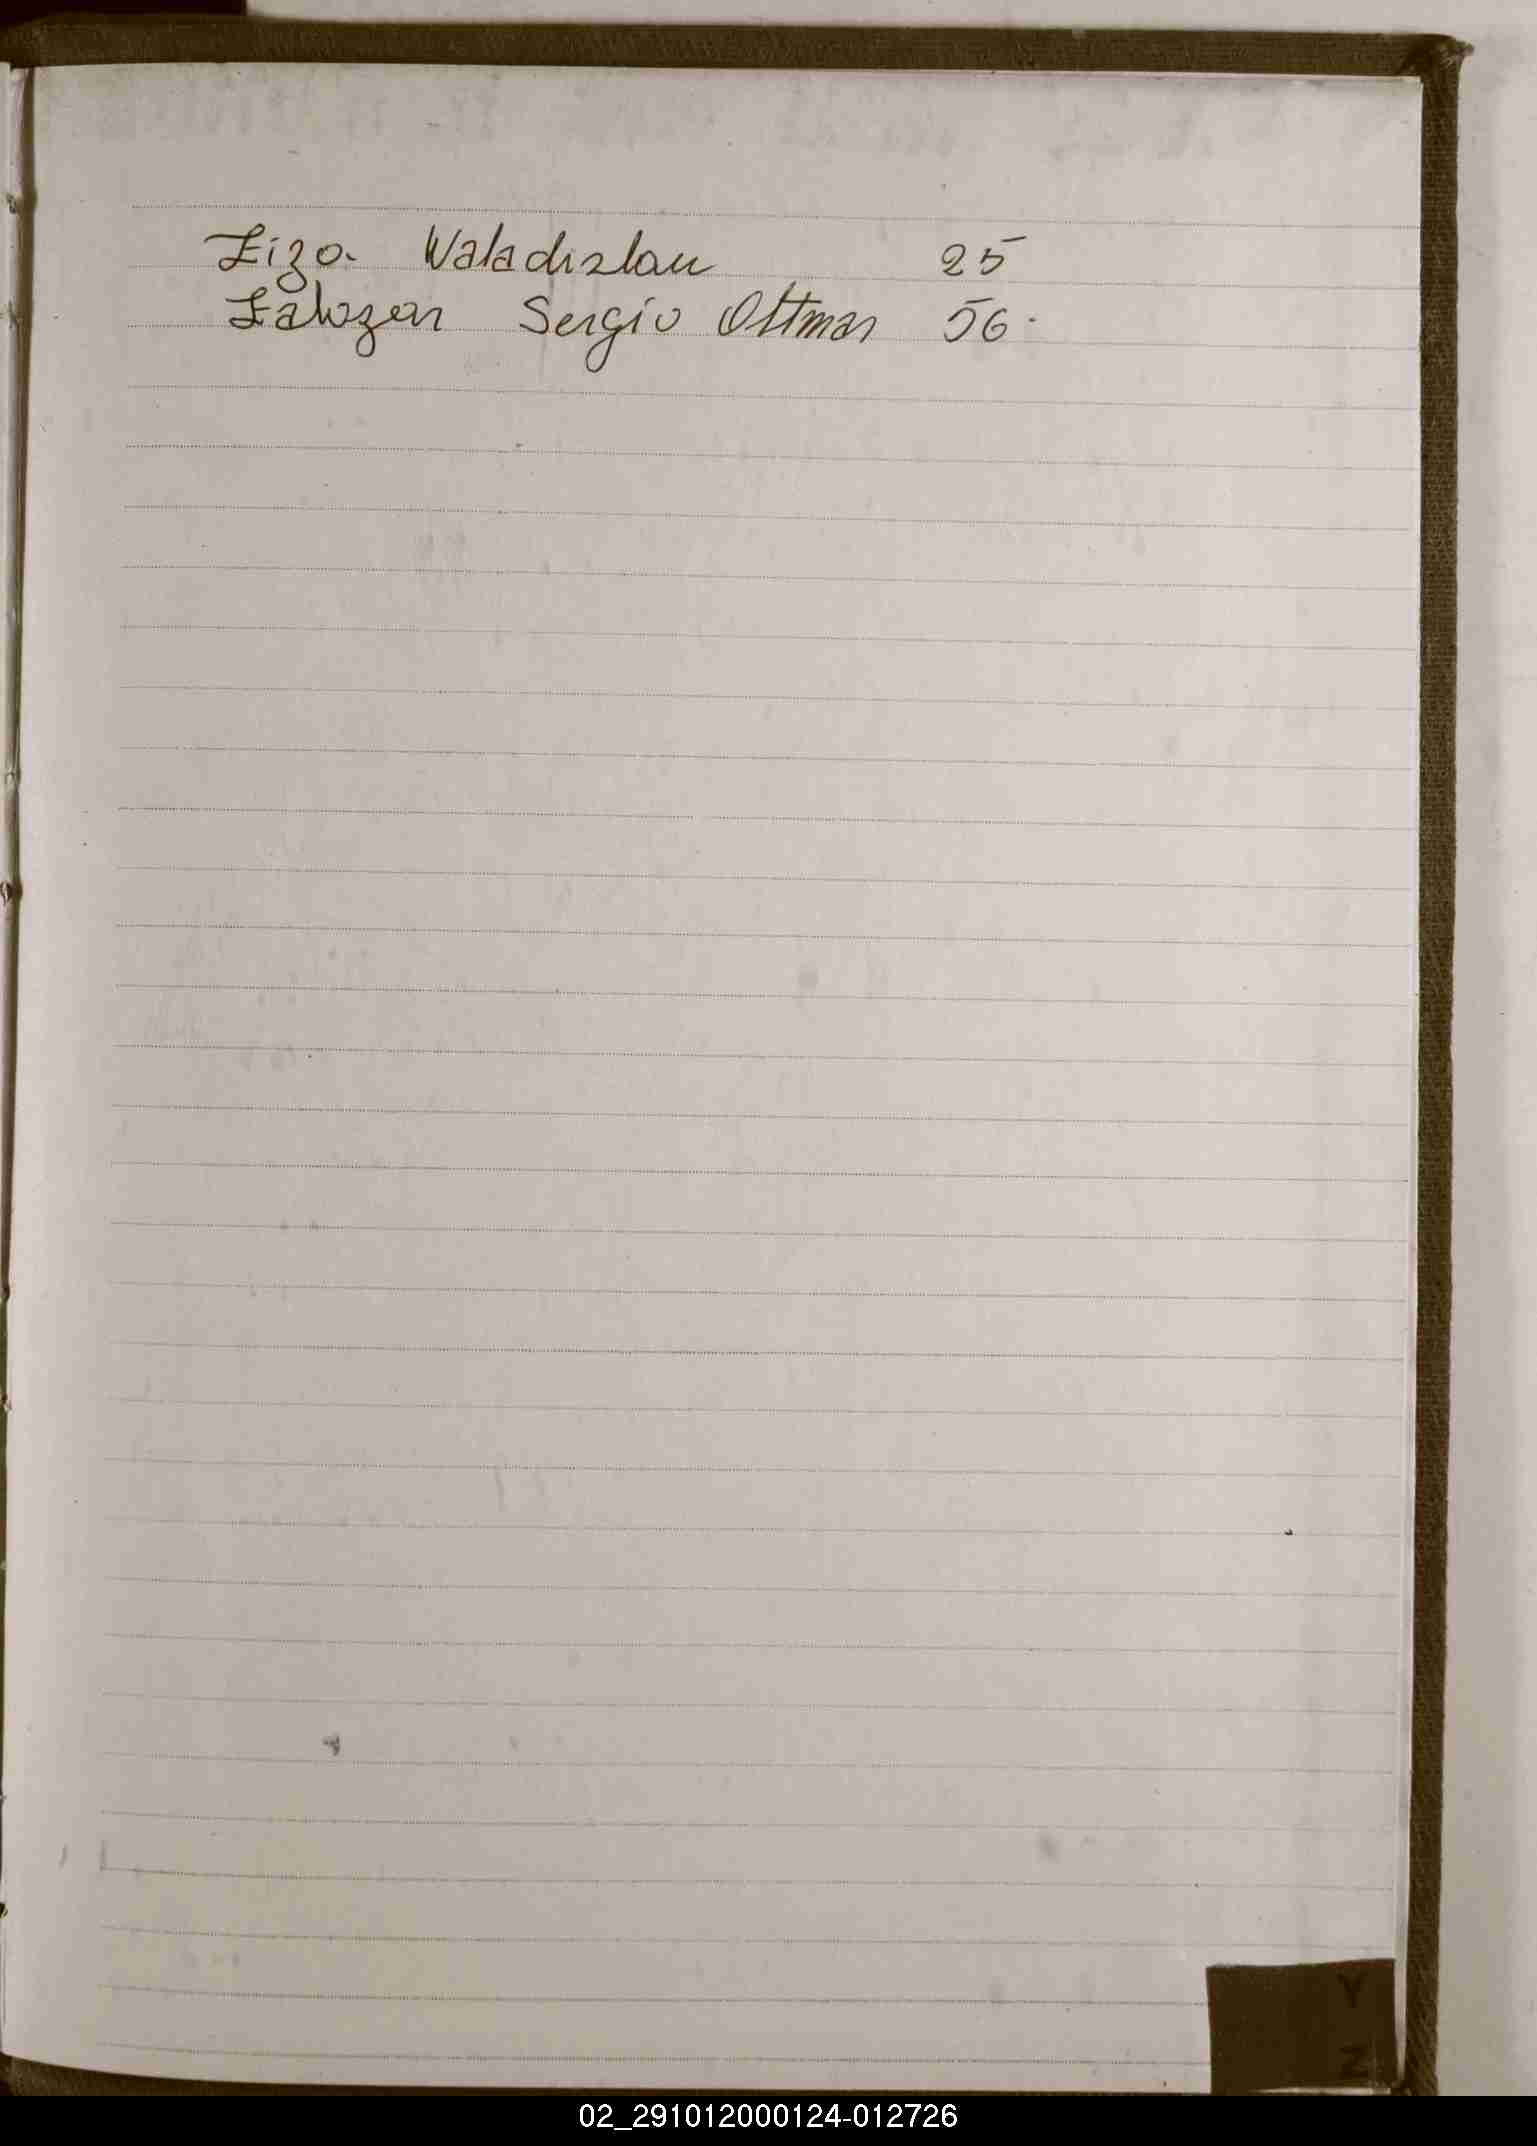 Zizo. Waladizlau 25
Zalozar Sergio Ottmar 56.
Y
Z
02_291012000124-012726